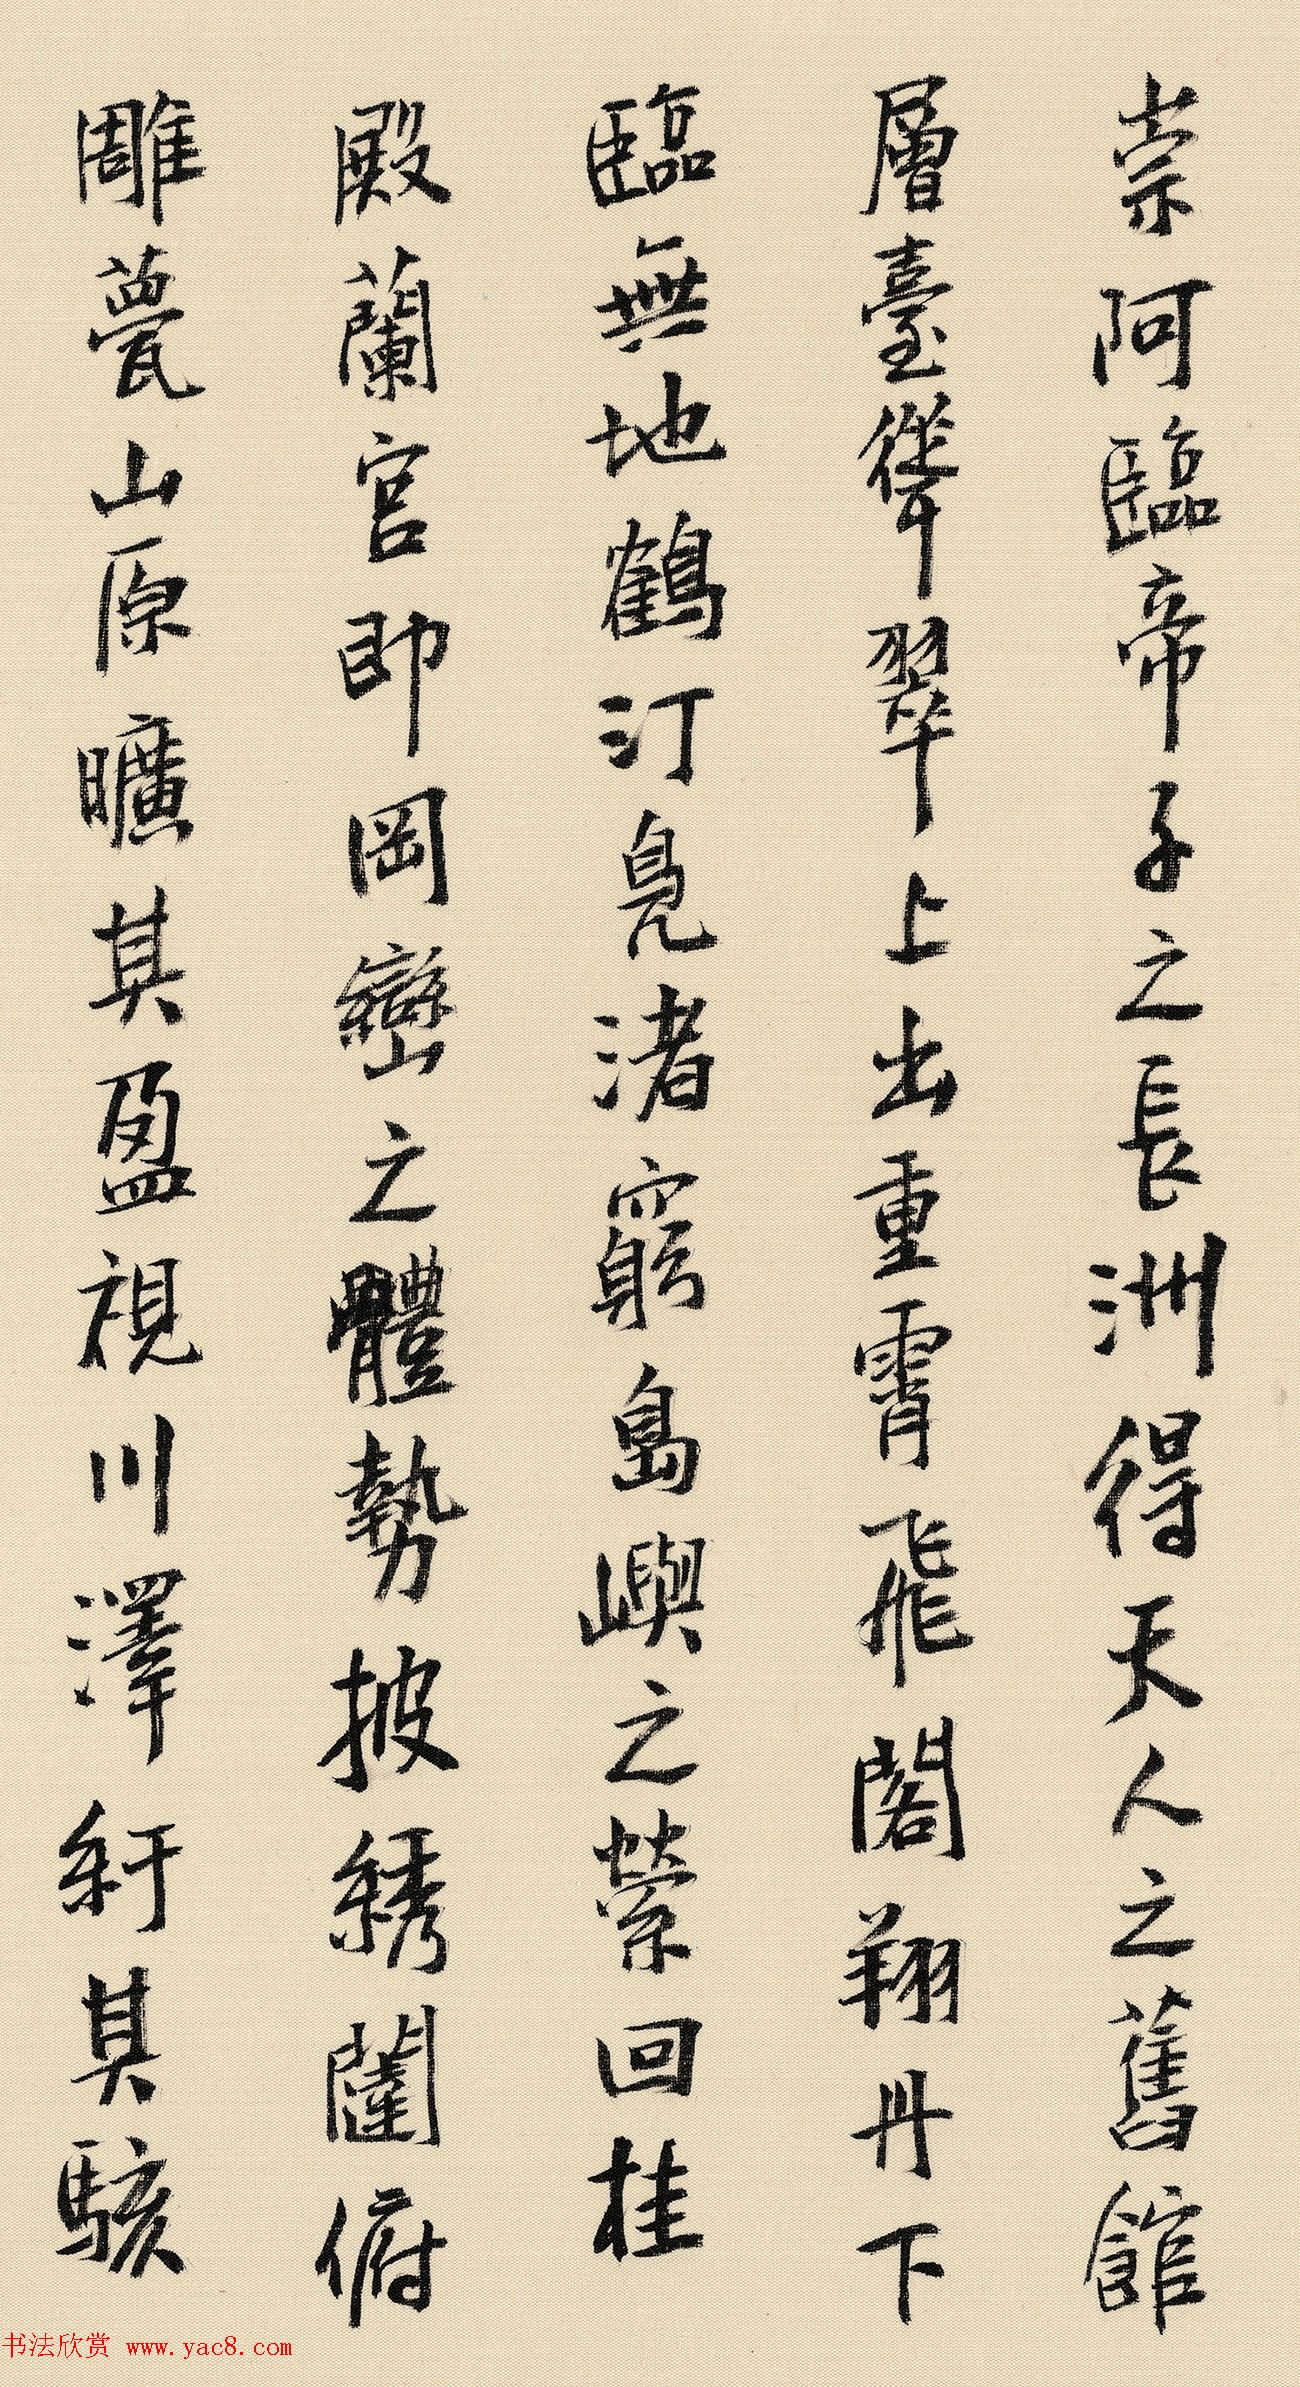 崇阿臨帝子之長洲得天人之舊館
層臺聳翠上出重霄飛閣翔丹下
臨無地鶴汀鳧渚窮島嶼之縈回桂
殿蘭宮即岡巒之體勢披綉闥俯
雕甍山原曠其盈視川澤紆其駭
书法欣赏 www.yac8.com